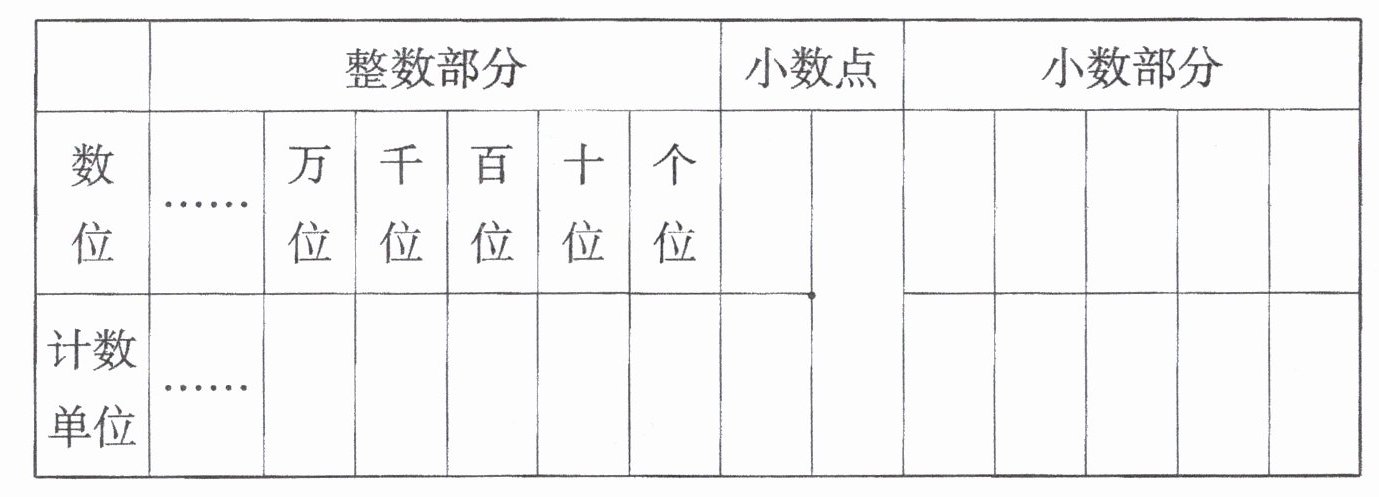 整数部分 小数点 小数部分
数位 …… 万位 千位 百位 十位 个位
计数单位 ……